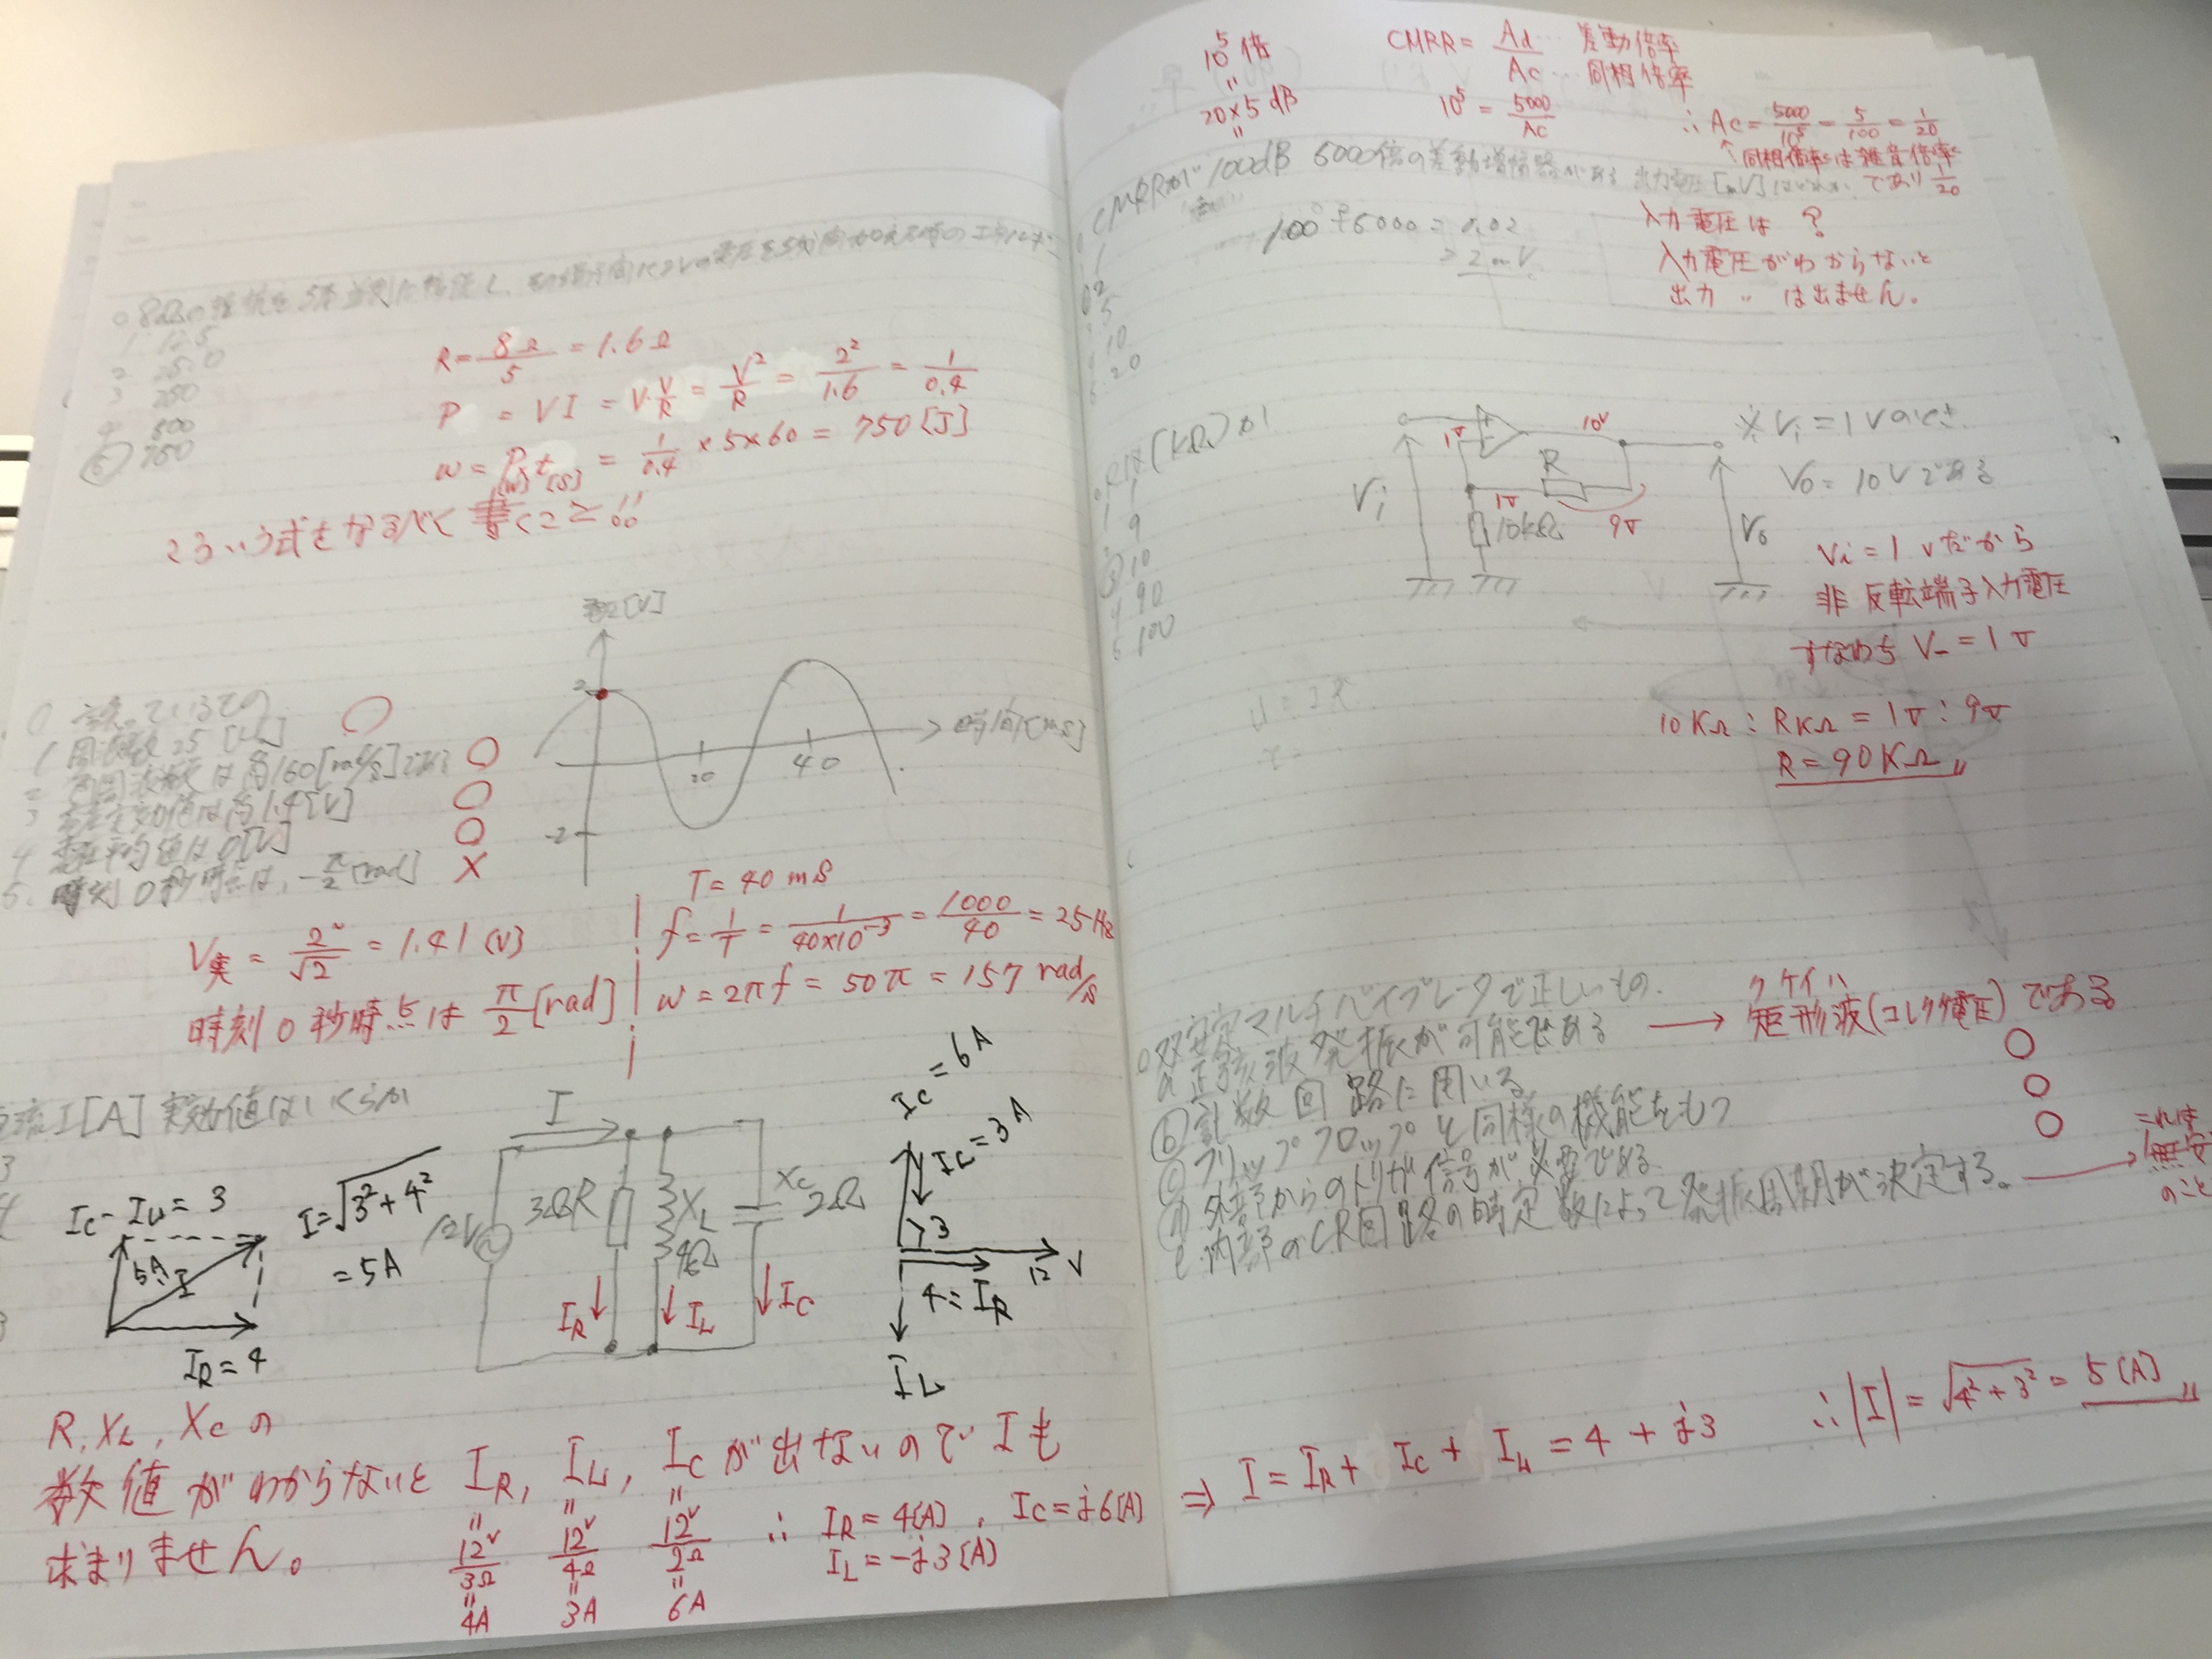 R = 8Ω/5 = 1.6Ω
P = VI = V・V/R = V²/R = 2²/1.6 = 1/0.4
W = P[W] t[S] = 1/0.4 × 5×60 = 750[J]
こういう式をなるべく書くこと!!
1 12.5
2 25.0
3 250
4 500
⑤ 750
電圧[V]
2
20
40
時間[ms]
-2
1 周波数25[Hz]
2 角周波数は約160[rad/s]である
3 電圧実効値は約1.4[V]
4 電圧平均値は0[V]
5. 時刻0秒時点は、-π/2[rad]
×
V実 = 2ᵛ/√2 = 1.41(V)
時刻0秒時点は π/2[rad]
T = 40ms
f = 1/T = 1/40×10⁻³ = 1000/40 = 25Hz
ω = 2πf = 50π = 157 rad/s
流I[A]実効値はいくらか
Ic - IL = 3
5A
I
IR = 4
I = √3²+4²
= 5A
I
12V
3Ω R
XL
4Ω
Xc
2Ω
IR
IL
IC
Ic = 6A
IL = 3A
3
12 V
4 = IR
IL
R, XL, Xcの
数値がわからないと IR, IL, Icが出ないのでIも
求まりません。
12ᵛ/3Ω = 4A
12ᵛ/4Ω = 3A
12ᵛ/2Ω = 6A
∴ IR = 4[A], Ic = j6[A]
IL = -j3[A]
10⁵倍
〃
20×5dB
〃
CMRR = Ad/Ac
Ad … 差動倍率
Ac … 同相倍率
10⁵ = 5000/Ac
∴ Ac = 5000/10⁵ = 5/100 = 1/20
↑同相倍率は雑音倍率
であり1/20
CMRRが100dB 5000倍の差動増幅器がある 出力電圧[mV]は
100÷5000 = 0.02
2mV
入力電圧は?
入力電圧がわからないと
出力 〃 は出ません。
1
2
5
10
20
Rは(kΩ)か
1 1
9
③ 10
4 90
5 100
Vi
1V
10V
R
1V
9V
10kΩ
Vo
※Vi = 1Vのとき
Vo = 10Vである
Vi = 1Vだから
非反転端子入力電圧
すなわち V- = 1V
10KΩ : RKΩ = 1V : 9V
R = 90KΩ
双安定マルチバイブレータで正しいもの.
a 正弦波発振が可能である
→ 矩形波(コレクタ電圧)である
クケイハ
ⓑ 計数回路に用いる
ⓒ フリップフロップと同様の機能をもつ
ⓓ 外部からのトリガ信号が必要である
e. 内部のCR回路の時定数によって発振周期が決定する。
→ これは
無安
のこと
⇒ I = IR + Ic + IL = 4 + j3
∴ |I| = √4²+3² = 5[A]